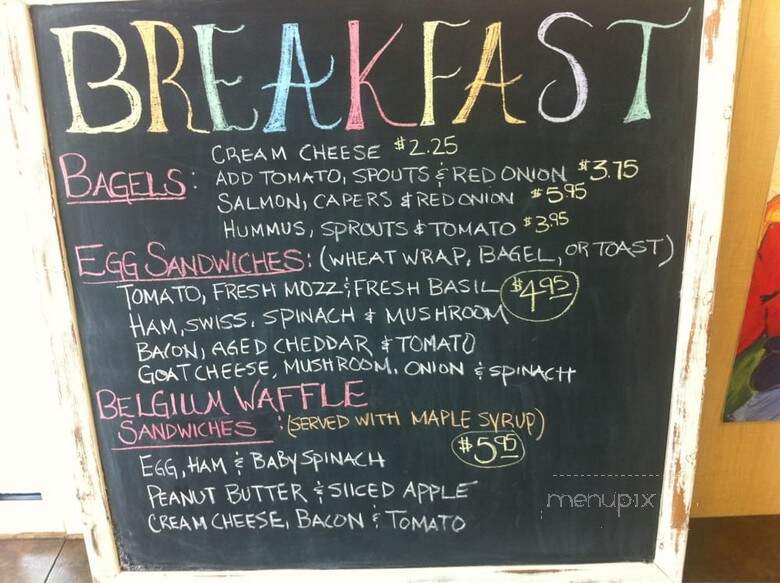 BREAKFAST
BAGELS: CREAM CHEESE $2.25
ADD TOMATO, SPOUTS & RED ONION $3.75
SALMON, CAPERS & RED ONION $5.95
HUMMUS, SPROUTS & TOMATO $3.95
EGG SANDWICHES: (WHEAT WRAP, BAGEL, OR TOAST)
TOMATO, FRESH MOZZ & FRESH BASIL $4.95
HAM, SWISS, SPINACH & MUSHROOM
BACON, AGED CHEDDAR & TOMATO
GOAT CHEESE, MUSHROOM, ONION & SPINACH
BELGIUM WAFFLE
SANDWICHES: (SERVED WITH MAPLE SYRUP)
$5.95
EGG, HAM & BABY SPINACH
PEANUT BUTTER & SLICED APPLE
CREAM CHEESE, BACON & TOMATO
menupix